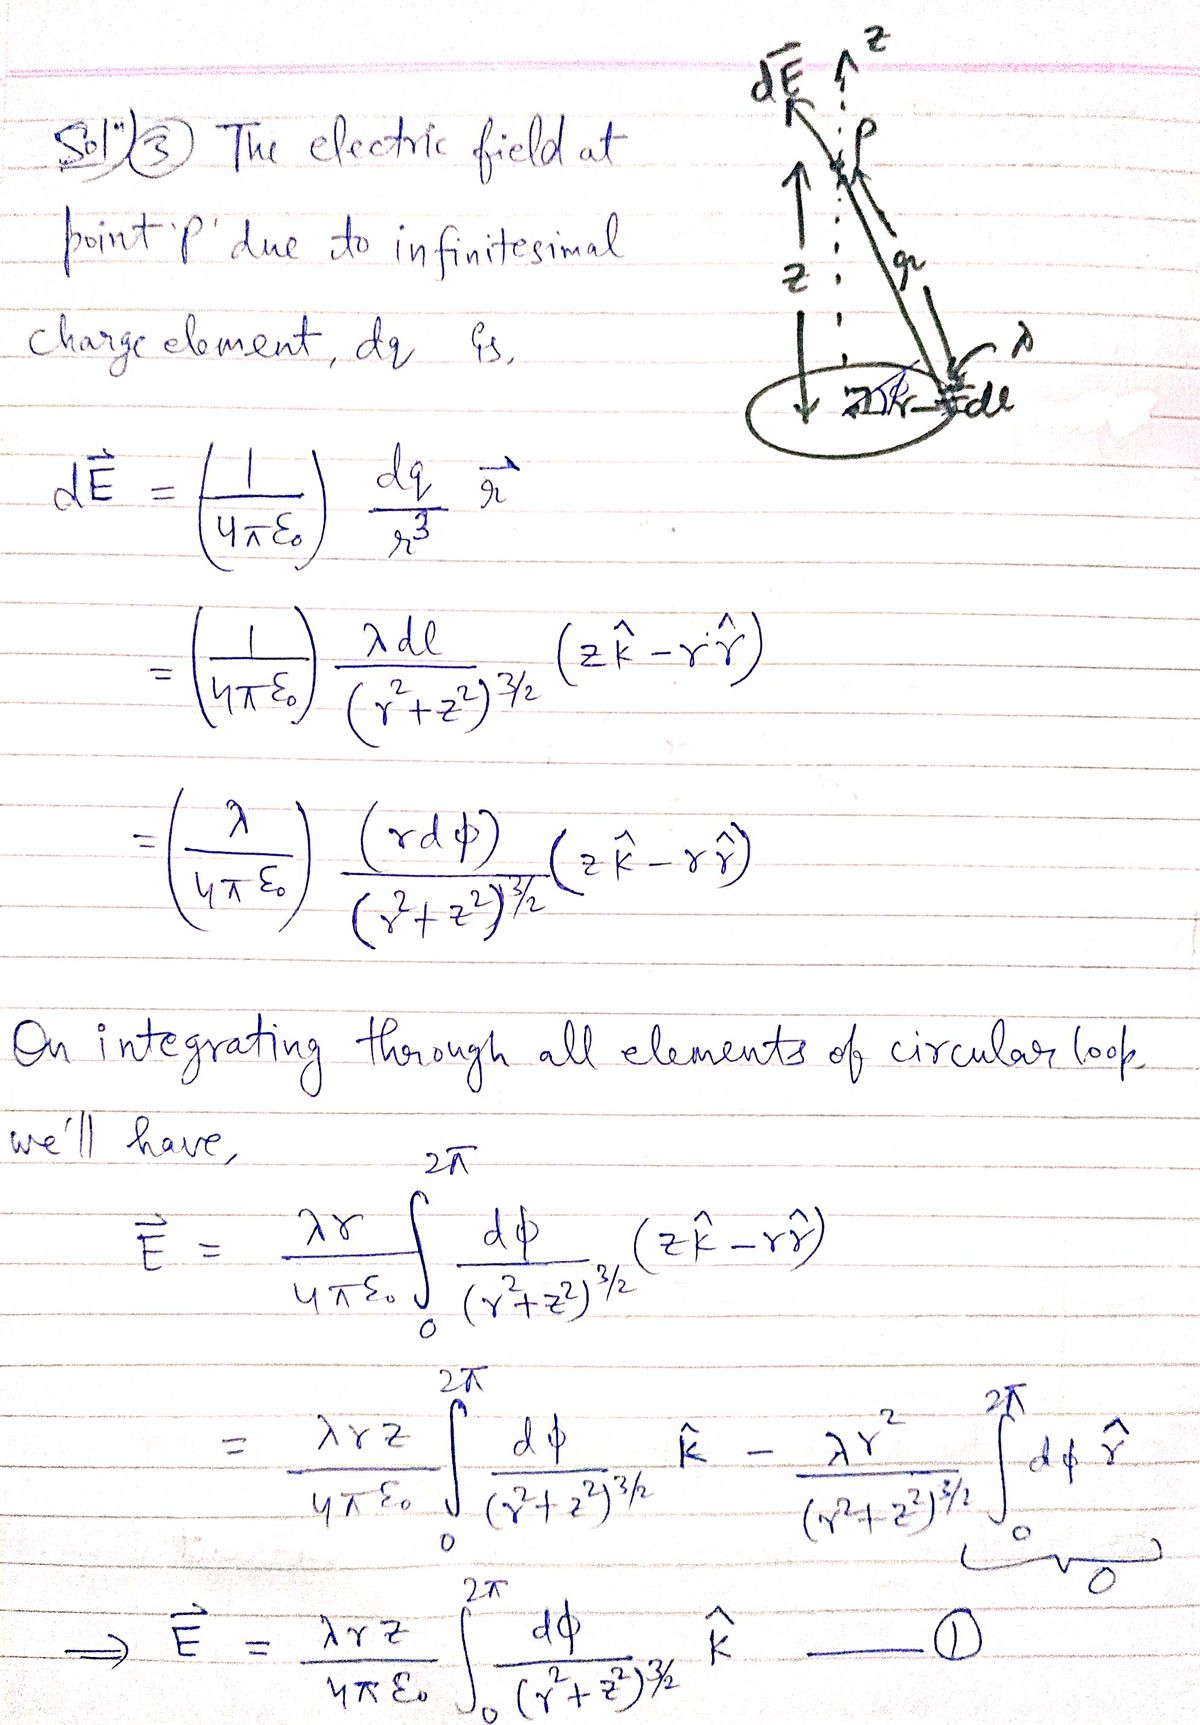 Solⁿ ③ The electric field at
point 'P' due to infinitesimal
charge element, dq is,
dE⃗ = (1/4πε₀) dq/r³ r⃗
= (1/4πε₀) λdl/(r²+z²)^3/2 (zk̂ - r r̂)
= (λ/4πε₀) (rdϕ)/(r²+z²)^3/2 (zk̂ - r r̂)
On integrating through all elements of circular loop
we'll have,
E⃗ = λr/4πε₀ ∫₀^2π dϕ/(r²+z²)^3/2 (zk̂ - r r̂)
= λrz/4πε₀ ∫₀^2π dϕ/(r²+z²)^3/2 k̂ - λr²/(r²+z²)^3/2 ∫₀^2π dϕ r̂
0
⟹ E⃗ = λrz/4πε₀ ∫₀^2π dϕ/(r²+z²)^3/2 k̂ —— ①
z
dE⃗
P
z
r
λ
dl